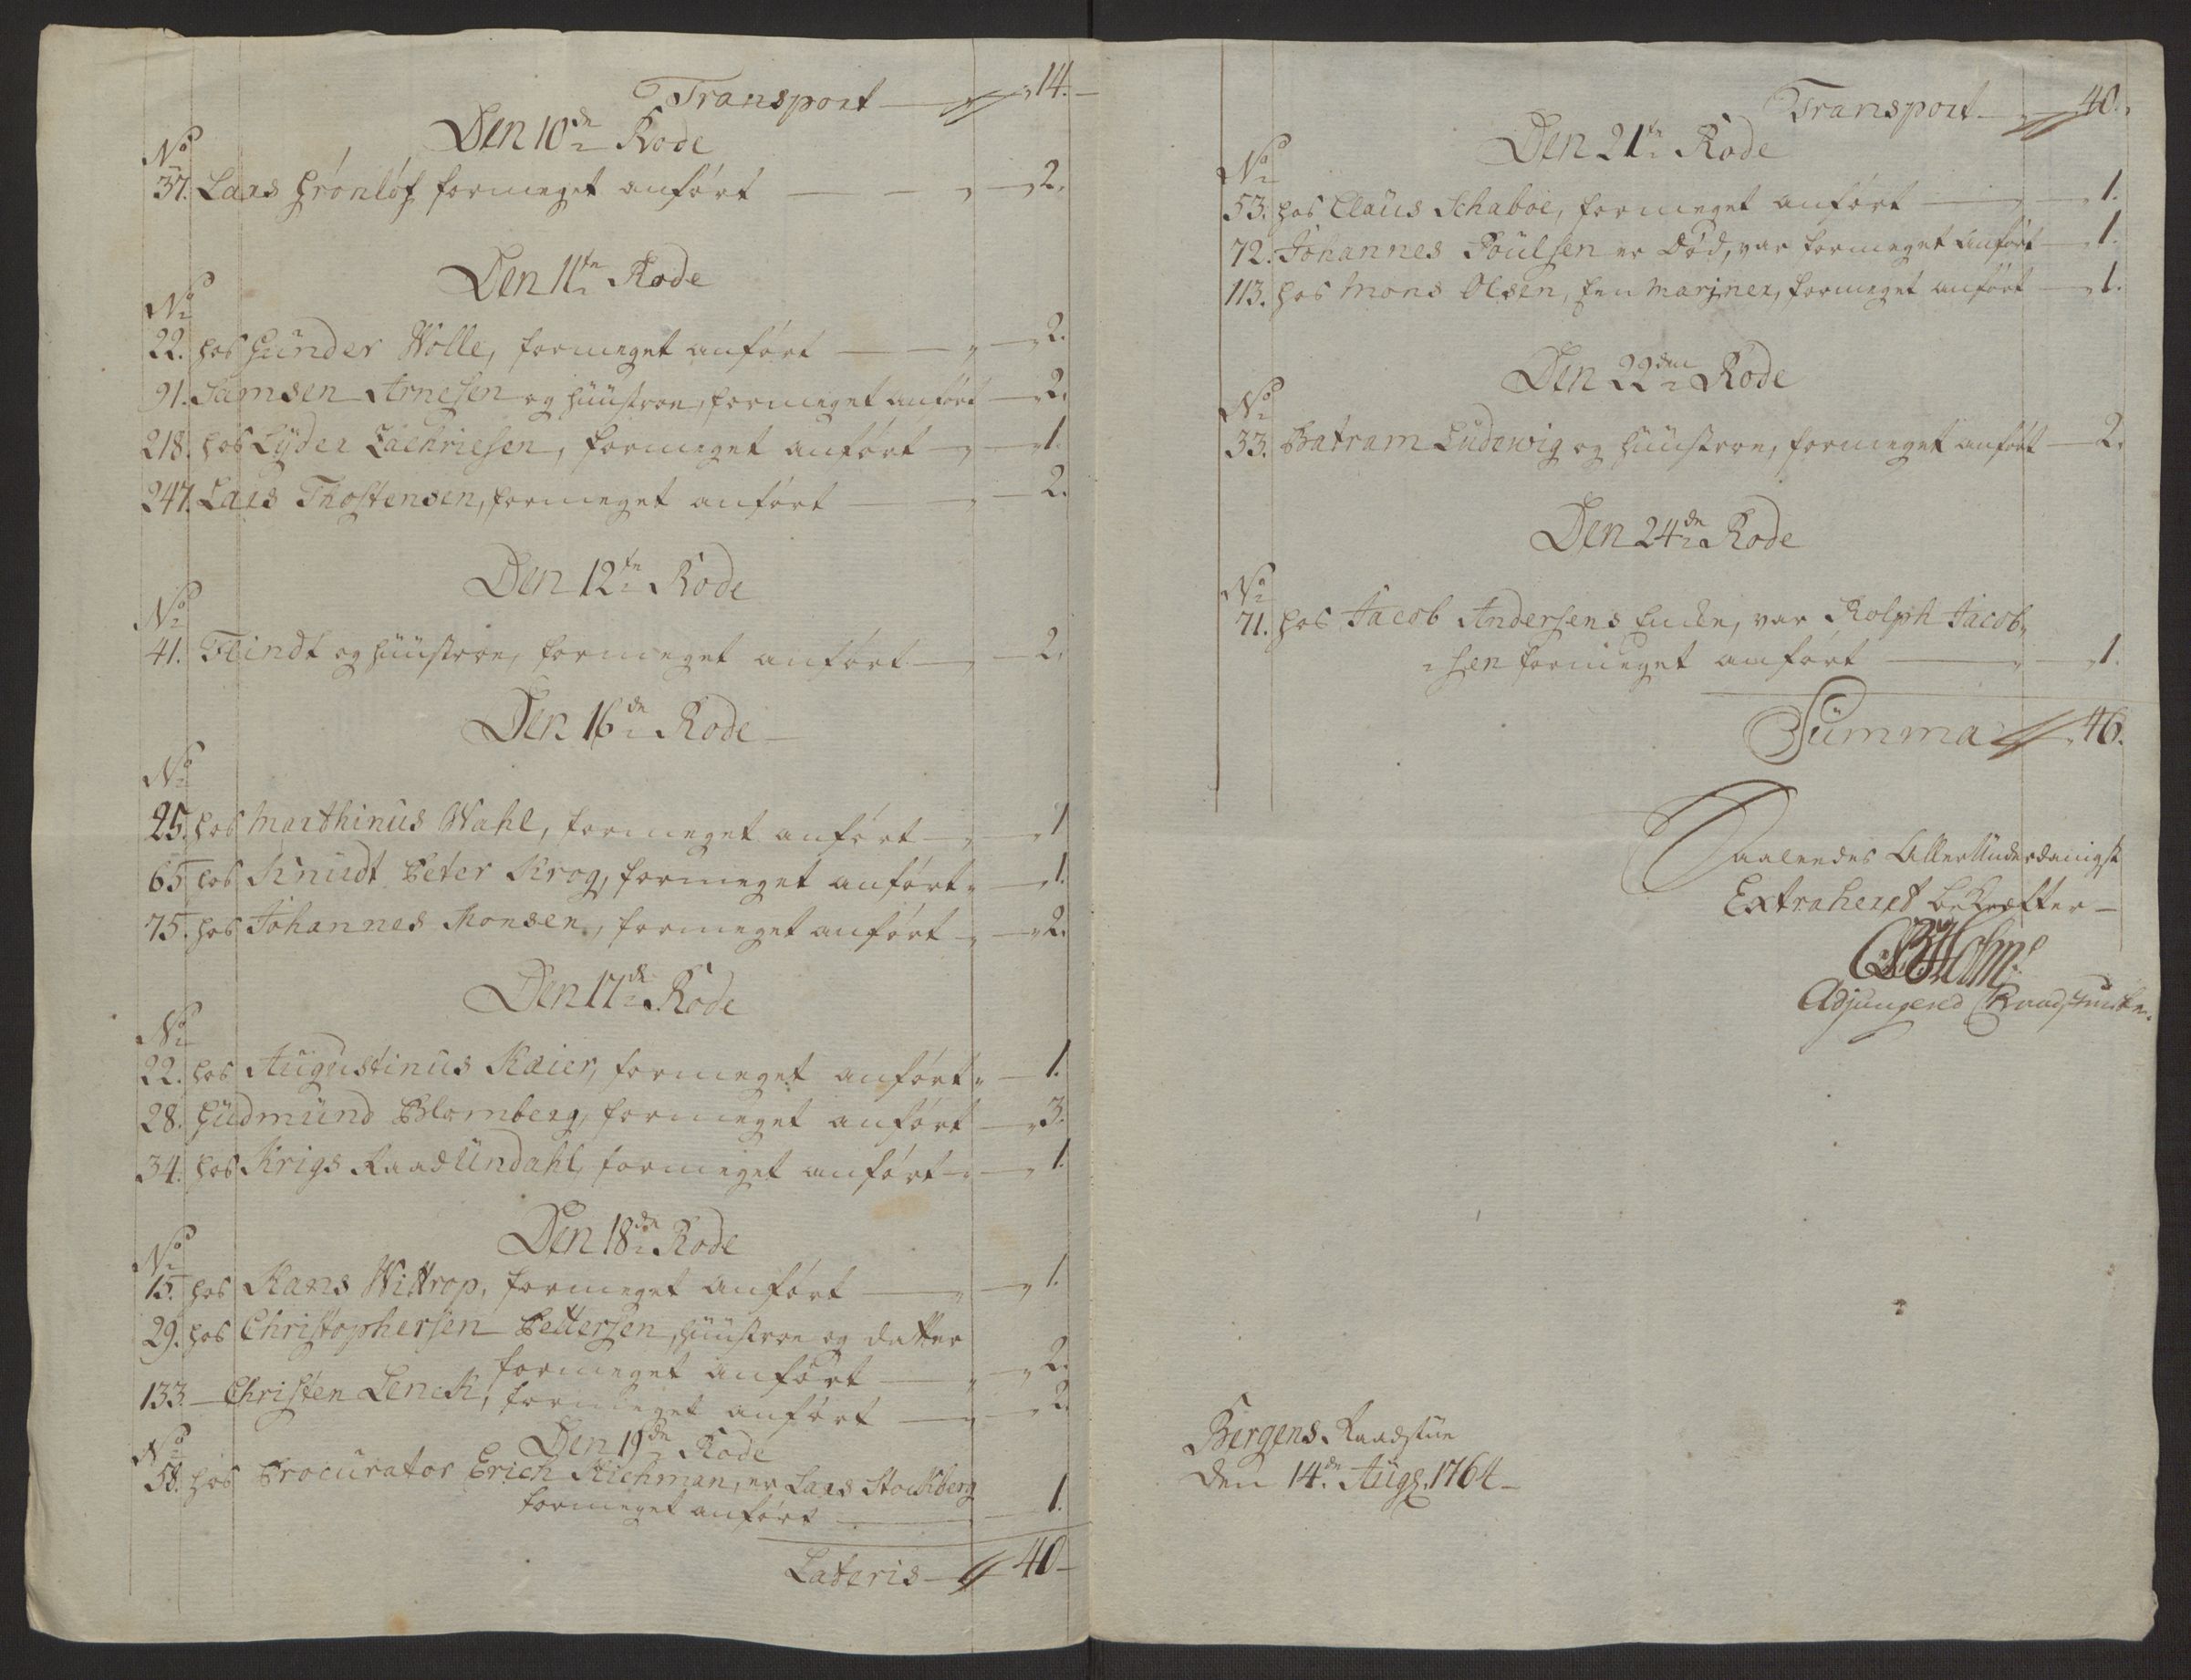 Transport — 14. —
Den 10de Rode
No
37. Lars Grönlöf formeget anfört — 2.
Den 11te Rode
No
22. hos Günder Wolle, formeget anfört — 2.
91. Samsen Arnesen og Hüüstroe, formeget anfört — 2.
218. hos Lÿder Zachriesen, formeget anfört — 1.
247. Lars Thostensen, formeget anfört — 2.
Den 12te Rode
No
41. Flindt og Hüüstroe, formeget anfört — 2.
Den 16de Rode
No
25. hos Marthinus Wahl, formeget anfört — 1
65 hos Knudt Peter Krog, formeget anfört — 1.
75. hos Johannes Monsen, formeget anfört — 2.
Den 17de Rode
No
22. hos Augustinus Kaier, formeget anfört — 1.
28. Gudmünd Blomberg, formeget anfört — 3.
34. hos Krigs Raad Undahl, formeget anfört — 1.
Den 18de Rode
No
15. hos Hans Wittrop, formeget anfört — 1.
29. hos Christophersen Pettersen, Hüüstroe og datter
formeget anfört — 2.
133. — Christen Lenck, formeget anfört — 2.
Den 19de Rode
No
58. hos Procurator Erich Richman, er Lars Stockberg
formeget anfört — 1.
Lateris — 40 —
Transport — 40.
Den 21te Rode
No
53. hos Claüs Schaboe, formeget anfört — 1.
72. Johannes Poülsen er död, var formeget anfört — 1.
113. hos Mons Olsen, een Mariner, formeget anfört — 1.
Den 22den Rode
No
33. Batram Ludewig og Hüüstroe, formeget anfört — 2.
Den 24de Rode
No
71. hos Jacob Andersens Encke, var Rolph Jacob-
sen formeget anfört — 1.
Summa — 46.
Saaledes Allerunderdanigst
Extraheret bekræfter —
Holm
Adjungered Raadstueskr.
Bergens Raadstüe
den 14de Aug. 1764 —